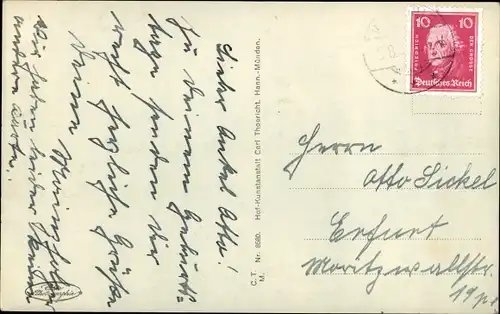 Lieber Onkel Otto!
Zu Deinem Geburts=
tage senden Dir
recht herzliche Grüße
Deine
Wir haben leider keine
andere Karte.
C. T.
M. Nr. 8580. Hof-Kunstanstalt Carl Thoericht, Hann.-Münden.
Echte
Photographie
10 10
FRIEDRICH DER GROSSE
Deutsches Reich
Herrn
Otto Sickel
Erfurt
Moritzwallstr.
19